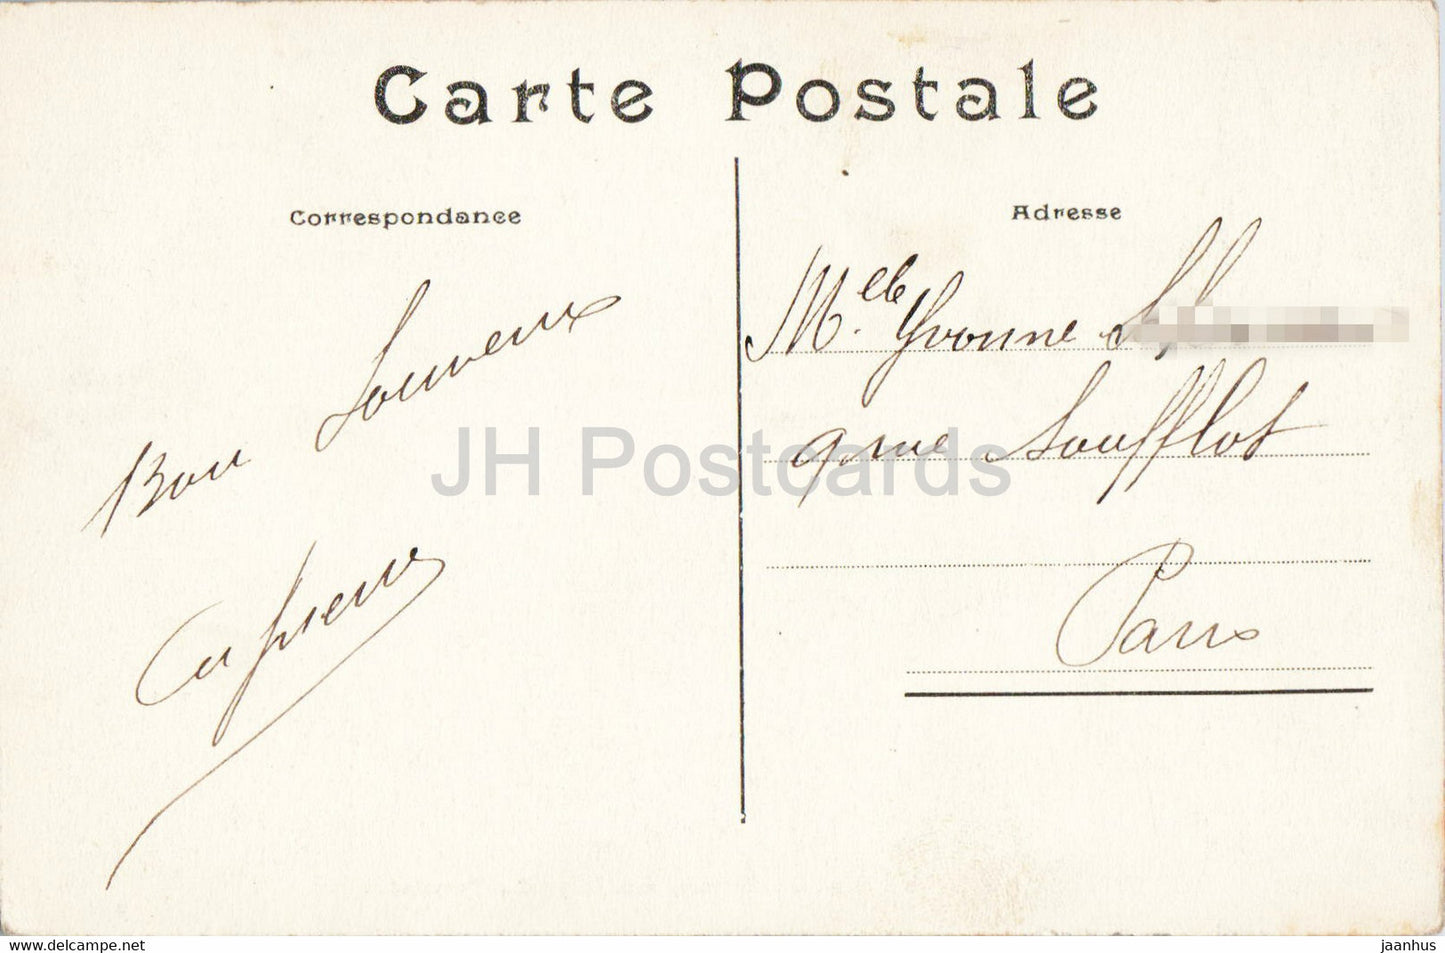 Carte Postale
Correspondance
Adresse
Bon Souvenir
Melle Yvonne
9 rue Soufflot
Paris
JH Postcards
www.delcampe.net
jaanhus